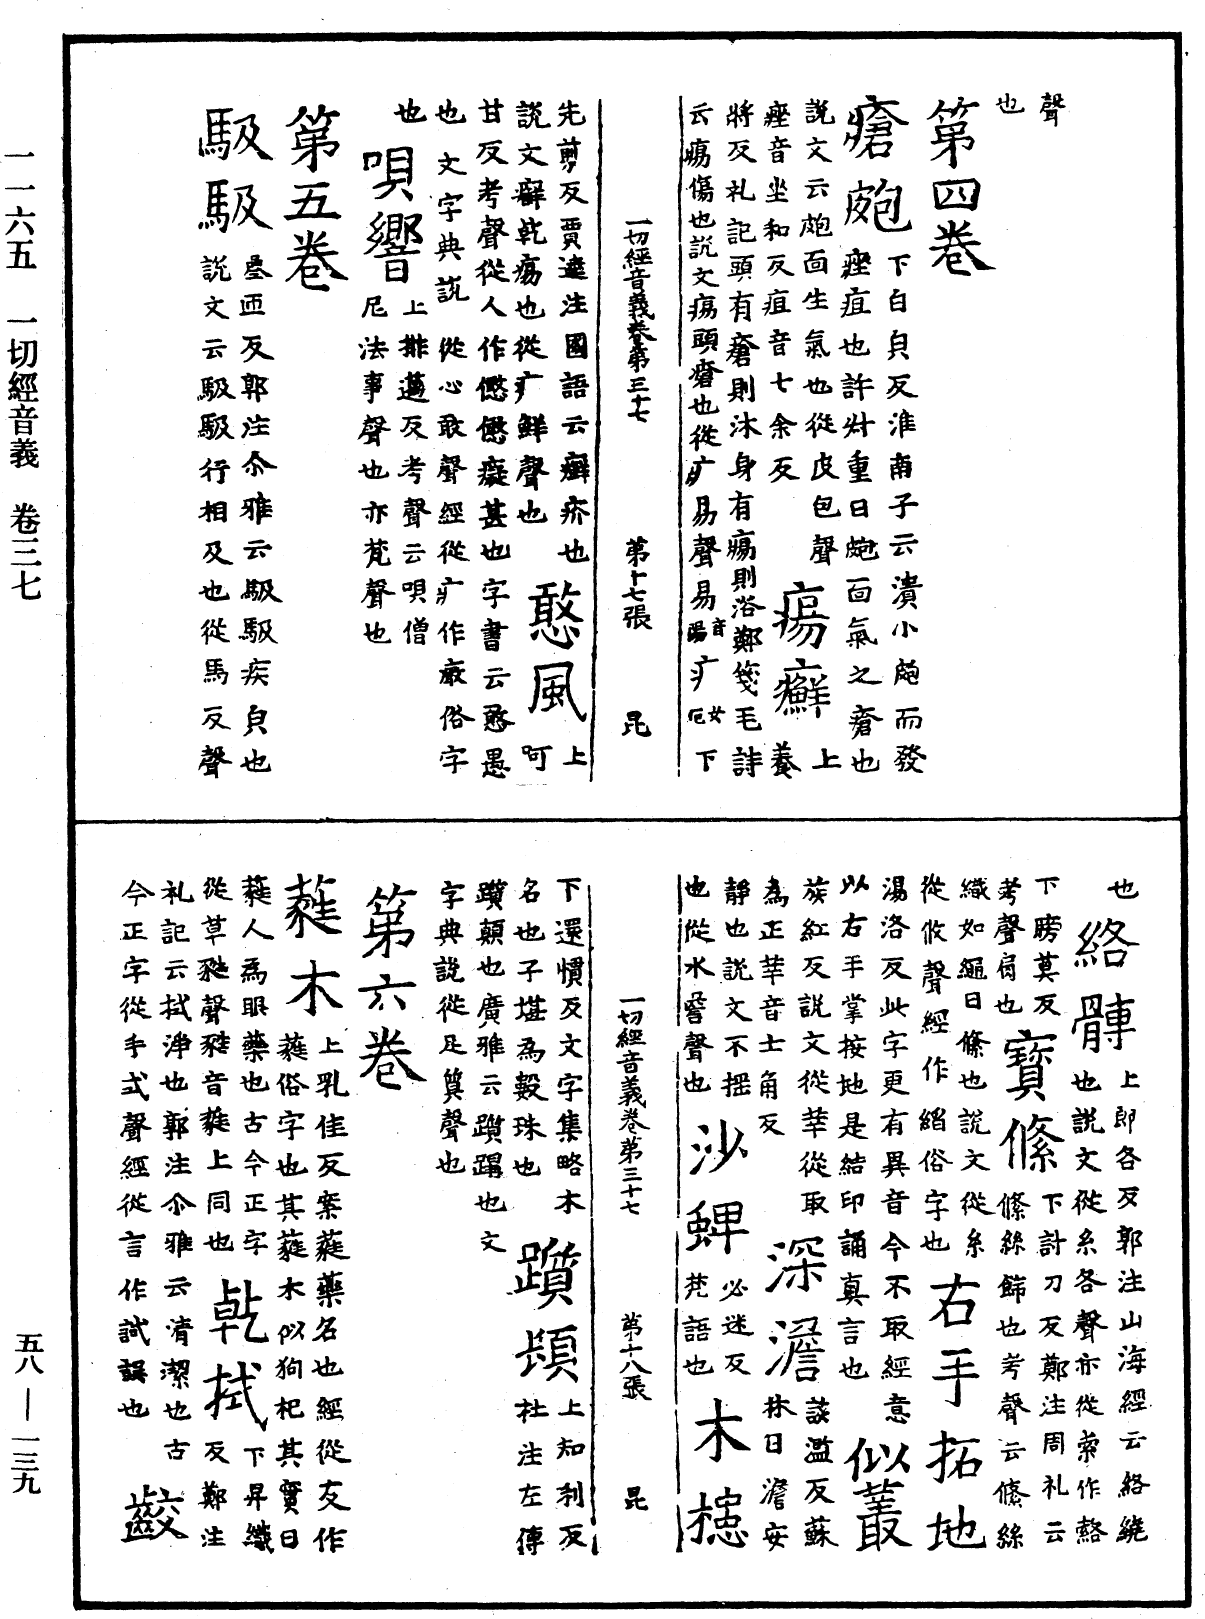 聲
也
第四卷
瘡皰下白皃反淮南子云潰小皰而發
痤疽也許叔重曰皰面氣之瘡也
說文云皰面生氣也從皮包聲
痤音坐和反疽音七余反
瘍癬上養
將反礼記頭有瘡則沐身有瘍則浴鄭箋毛詩
云瘍傷也說文瘍頭瘡也從疒昜聲昜音陽疒女厄下
一切經音義卷第三十七 第十七張 昆
先剪反賈逵注國語云癬疥也
說文癬乾瘍也從疒鮮聲也
憨風上呵
甘反考聲從人作㦥㦥癡甚也字書云憨愚
也文字典說從心敢聲經從疒作㾴俗字
也
唄響上排邁反考聲云唄僧
尼法事聲也亦梵聲也
第五卷
馺馺叄匝反郭注尒雅云馺馺疾皃也
說文云馺馺行相及也從馬及聲
也
絡髆上郎各反郭注山海經云絡繞
也說文從糸各聲亦從索作䋨
下膀莫反
考聲肩也
寶絛下討刀反鄭注周礼云
絛絲飾也考聲云絛絲
織如繩曰絛也說文從糸
從攸聲經作縚俗字也
右手拓地
湯洛反此字更有異音今不取經意
以右手掌按地是結印誦真言也
似叢
族紅反說文從丵從取
為正丵音士角反
深澹談濫反蘇
林曰澹安
靜也說文不摇
也從水詹聲也
沙蜱必迷反
梵語也
木槵
一切經音義卷第三十七 第十八張 昆
下還慣反文字集略木
名也子堪為數珠也
躓頓上知利反
杜注左傳
躓顛也廣雅云躓蹋也文
字典說從足質聲也
第六卷
蕤木上乳佳反案蕤藥名也經從友作
蕤俗字也其蕤木似狗杞其實曰
蕤人為眼藥也古今正字
從草甤聲甤音蕤上同也
乾拭下昇織
反鄭注
礼記云拭淨也郭注尒雅云清潔也古
今正字從手式聲經從言作試誤也
齩
一一六五 一切經音義 卷三七
五八—一三九